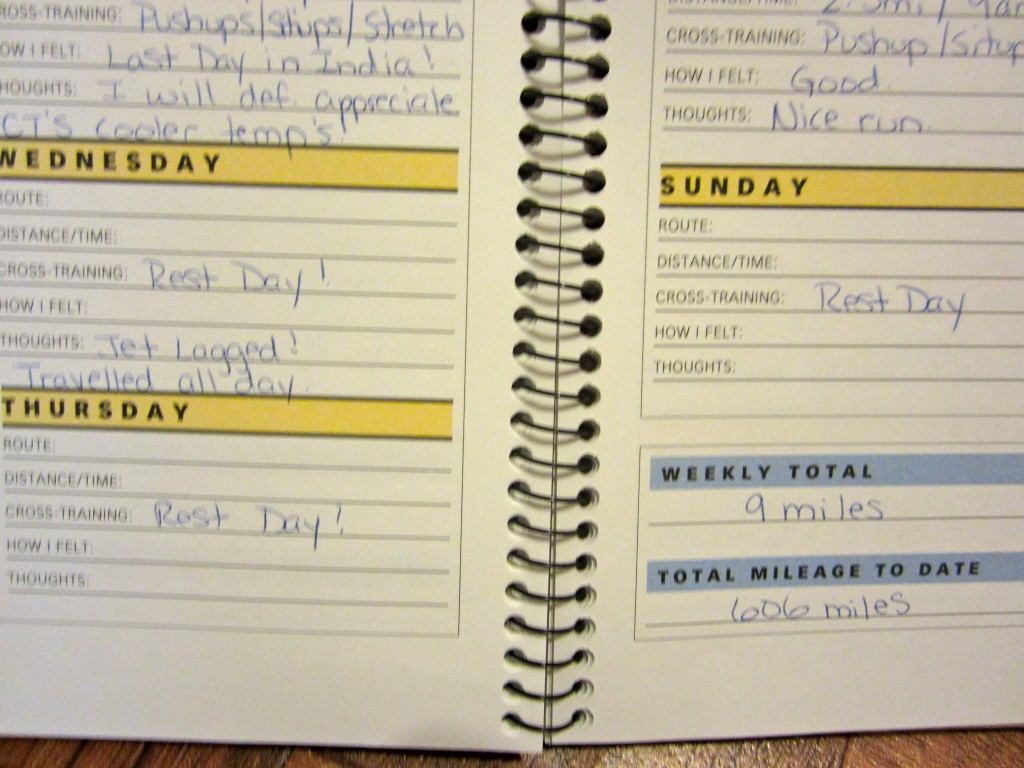 ROSS-TRAINING: Pushups/Situps/Stretch
OW I FELT: Last Day in India!
HOUGHTS: I will def. appreciate
CT'S cooler temp's!
WEDNESDAY
ROUTE:
DISTANCE/TIME:
CROSS-TRAINING: Rest Day!
HOW I FELT:
THOUGHTS: Jet Lagged!
Travelled all day.
THURSDAY
ROUTE:
DISTANCE/TIME:
CROSS-TRAINING: Rest Day!
HOW I FELT:
THOUGHTS:
DISTANCE/TIME:
CROSS-TRAINING: Pushup/Situp
HOW I FELT: Good.
THOUGHTS: Nice run.
SUNDAY
ROUTE:
DISTANCE/TIME:
CROSS-TRAINING: Rest Day
HOW I FELT:
THOUGHTS:
WEEKLY TOTAL
9 miles
TOTAL MILEAGE TO DATE
606 miles